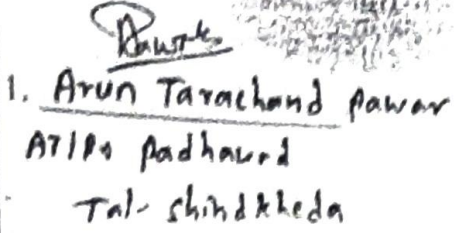 1. Arun Tarachand Pawar
AT/Po Padhavad
Tal- Shindkheda